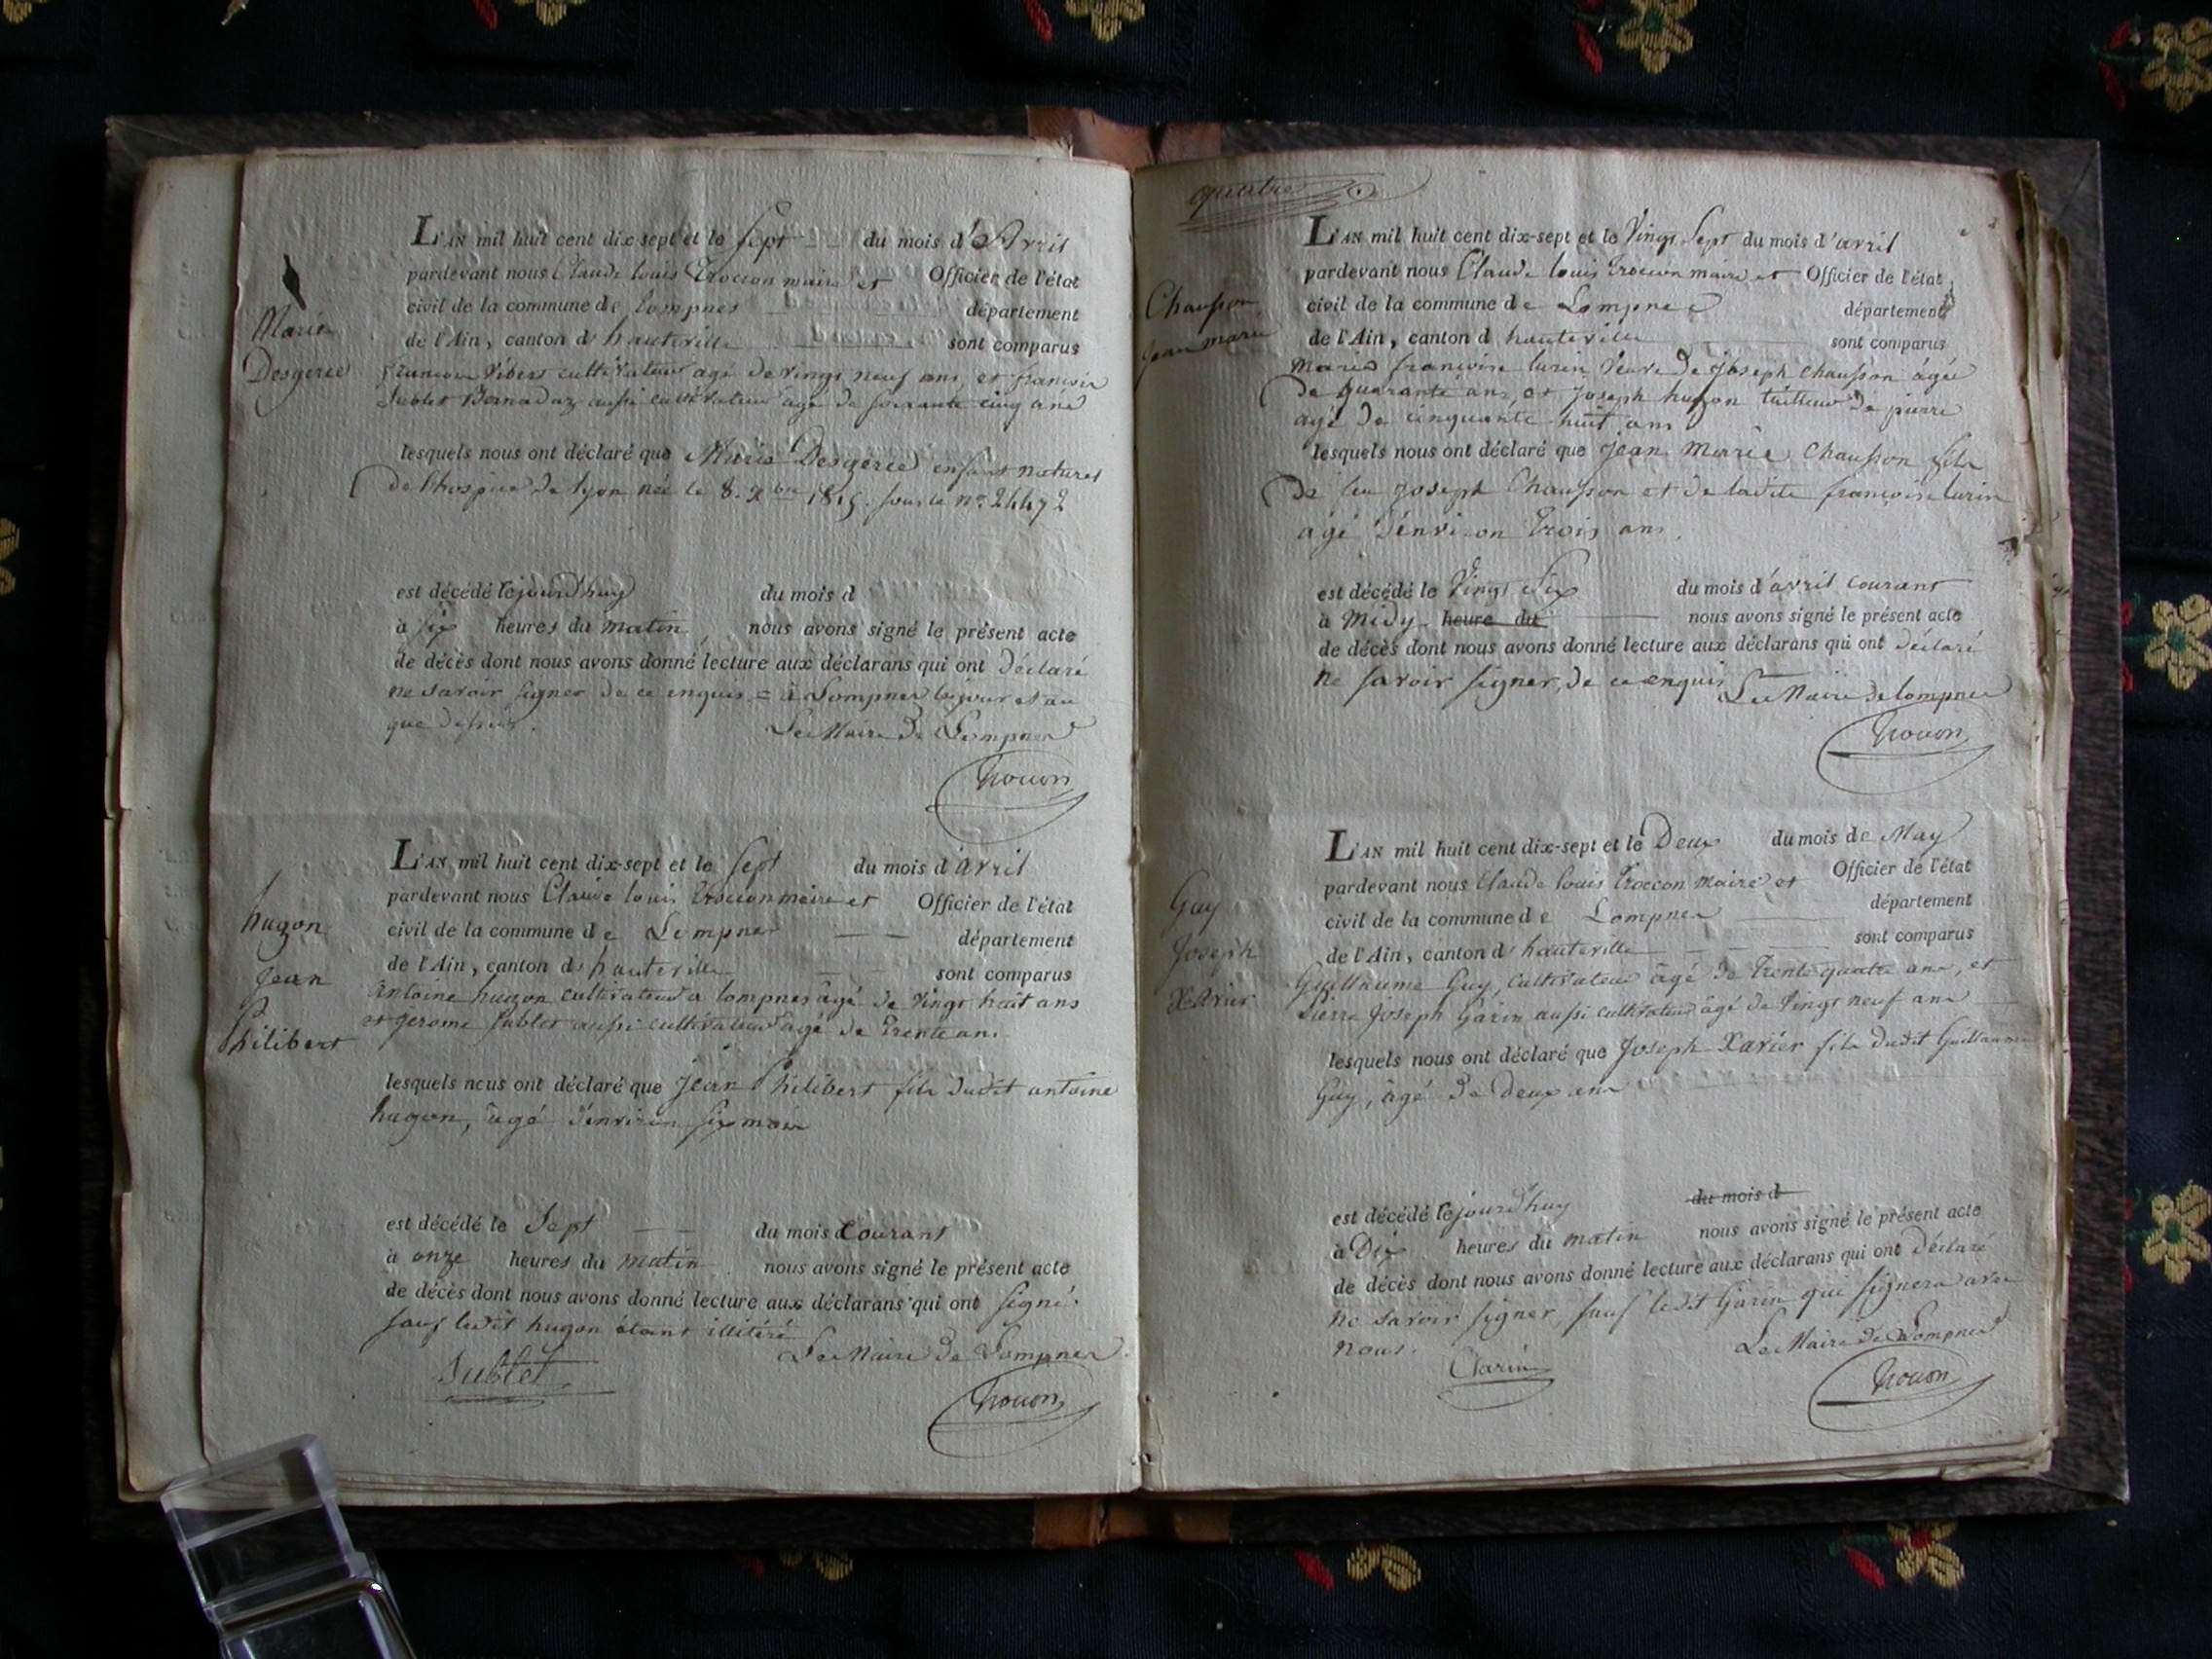 Marie
Desgeree
L'AN mil huit cent dix-sept et le sept du mois d'Avril
pardevant nous Claude louis Troccon maire et Officier de l'état
civil de la commune de Lompnes département
de l'Ain, canton d'hauteville sont comparus
françois cultivateur agé de vingt neuf ans, et françois
Sublet Bernadaz aussi cultivateur agé de soixante cinq ans
lesquels nous ont déclaré que Marie Desgeree enfant naturel
de lhospice de lyon née le 8. xbre 1815. sous le no. 24472
est décédé lejourdhuy du mois d
à six heures du matin nous avons signé le présent acte
de décès dont nous avons donné lecture aux déclarans qui ont déclaré
ne savoir signer de ce enquis = à Lompnes les jour et an
que dessus.
Le Maire de Lompnes
Trocon
hugon
jean
Philibert
L'AN mil huit cent dix-sept et le sept du mois d'avril
pardevant nous Claude louis Troccon maire et Officier de l'état
civil de la commune de Lompnes département
de l'Ain, canton d'hauteville sont comparus
Antoine hugon cultivateur a lompnes âgé de vingt huit ans
et jerome sublet aussi cultivateur agé de Trente ans.
lesquels nous ont déclaré que jean Philibert fils dudit antoine
hugon, âgé d'environ six mois
est décédé le Sept du mois courant
à onze heures du matin nous avons signé le présent acte
de décès dont nous avons donné lecture aux déclarans qui ont signé.
sauf ledit hugon étant illitéré
Le Maire de Lompnes.
Sublet
Trocon
quatre
Chausson
jean marie
L'AN mil huit cent dix-sept et le Vingt Sept du mois d'avril
pardevant nous Claude louis Troccon maire et Officier de l'état
civil de la commune de Lompnes département
de l'Ain, canton d hauteville sont comparus
Marie francoise lurin veuve de joseph chausson agée
de quarante ans, et joseph hugon tuitteur de pierre
agé de cinquante huit ans
lesquels nous ont déclaré que jean Marie Chausson fils
de feu joseph Chausson et de ladite francoise lurin
agé d'environ trois ans,
est décédé le Vingt Six du mois d'avril courant
à Midy. heure du nous avons signé le présent acte
de décès dont nous avons donné lecture aux déclarans qui ont déclaré
ne savoir signer, de ce enquis Le Maire de lompnes
Trocon
Guy
Joseph
Xavier
L'AN mil huit cent dix-sept et le Deux du mois de May
pardevant nous Claude louis Troccon Maire et Officier de l'état
civil de la commune de Lompnes département
de l'Ain, canton d'hauteville sont comparus
Guillaume Guy, cultivateur âgé de trente quatre ans, et
Pierre joseph Garin aussi cultivateur âgé de vingt neuf ans
lesquels nous ont déclaré que Joseph Xavier fils dudit Guillaume
Guy, âgé de deux ans
est décédé lejourdhuy du mois d
à Dix heures du matin nous avons signé le présent acte
de décès dont nous avons donné lecture aux déclarans qui ont déclaré
ne savoir signer, sauf ledit Garin que signera avec
nous.
Le Maire de Lompnes
Garin
Trocon